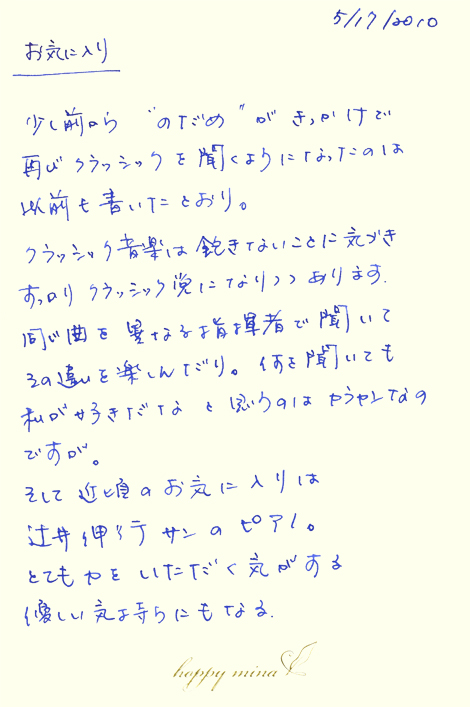 5/17/2010
お気に入り
少し前から "のだめ" が きっかけで
再び クラッシックを聞くようになったのは
以前も書いたとおり。
クラッシック音楽は飽きないことに気づき
すっかり クラッシック党になりつつあります.
同じ曲を異なる指揮者で聞いて
その違いを楽しんだり。何を聞いても
私が好きだな と思うのは カラヤンなの
ですが。
そして 近頃のお気に入りは
辻井伸行サンのピアノ。
とても力をいただく気がする
優しい気持ちにもなる.
happy mina